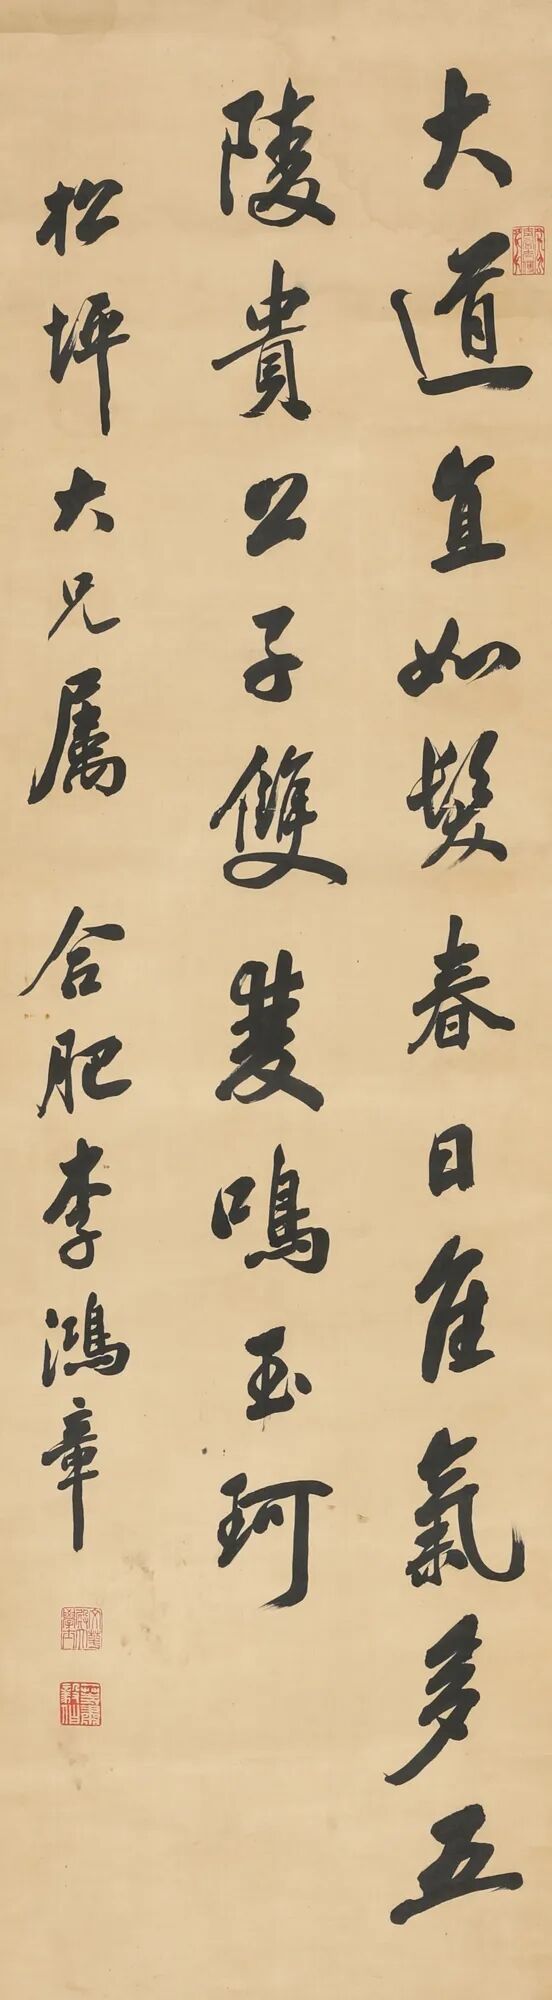 大道直如髮春日佳氣多五
陵貴公子雙雙鳴玉珂
松坪大兄属 合肥李鴻章